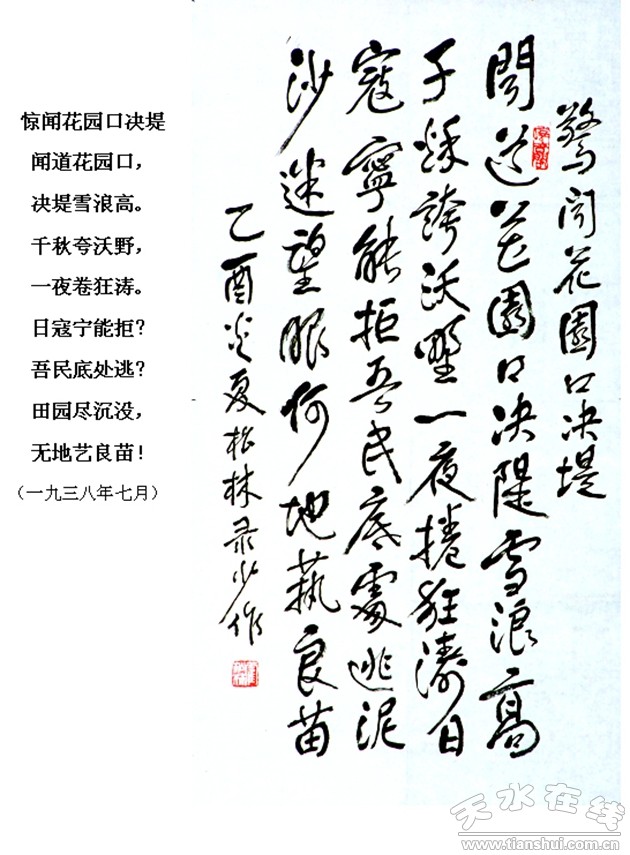 惊闻花园口决堤
闻道花园口，
决堤雪浪高。
千秋夸沃野，
一夜卷狂涛。
日寇宁能拒？
吾民底处逃？
田园尽沉没，
无地艺良苗！
（一九三八年七月）
驚闻花園口决堤
闻道花園口决隄雪浪高
千秋誇沃野一夜捲狂濤日
寇寧能拒吾民底處逃泥
沙迷望眼何地蓺良苗
乙酉炎夏松林录少作
天水在线
www.tianshui.com.cn